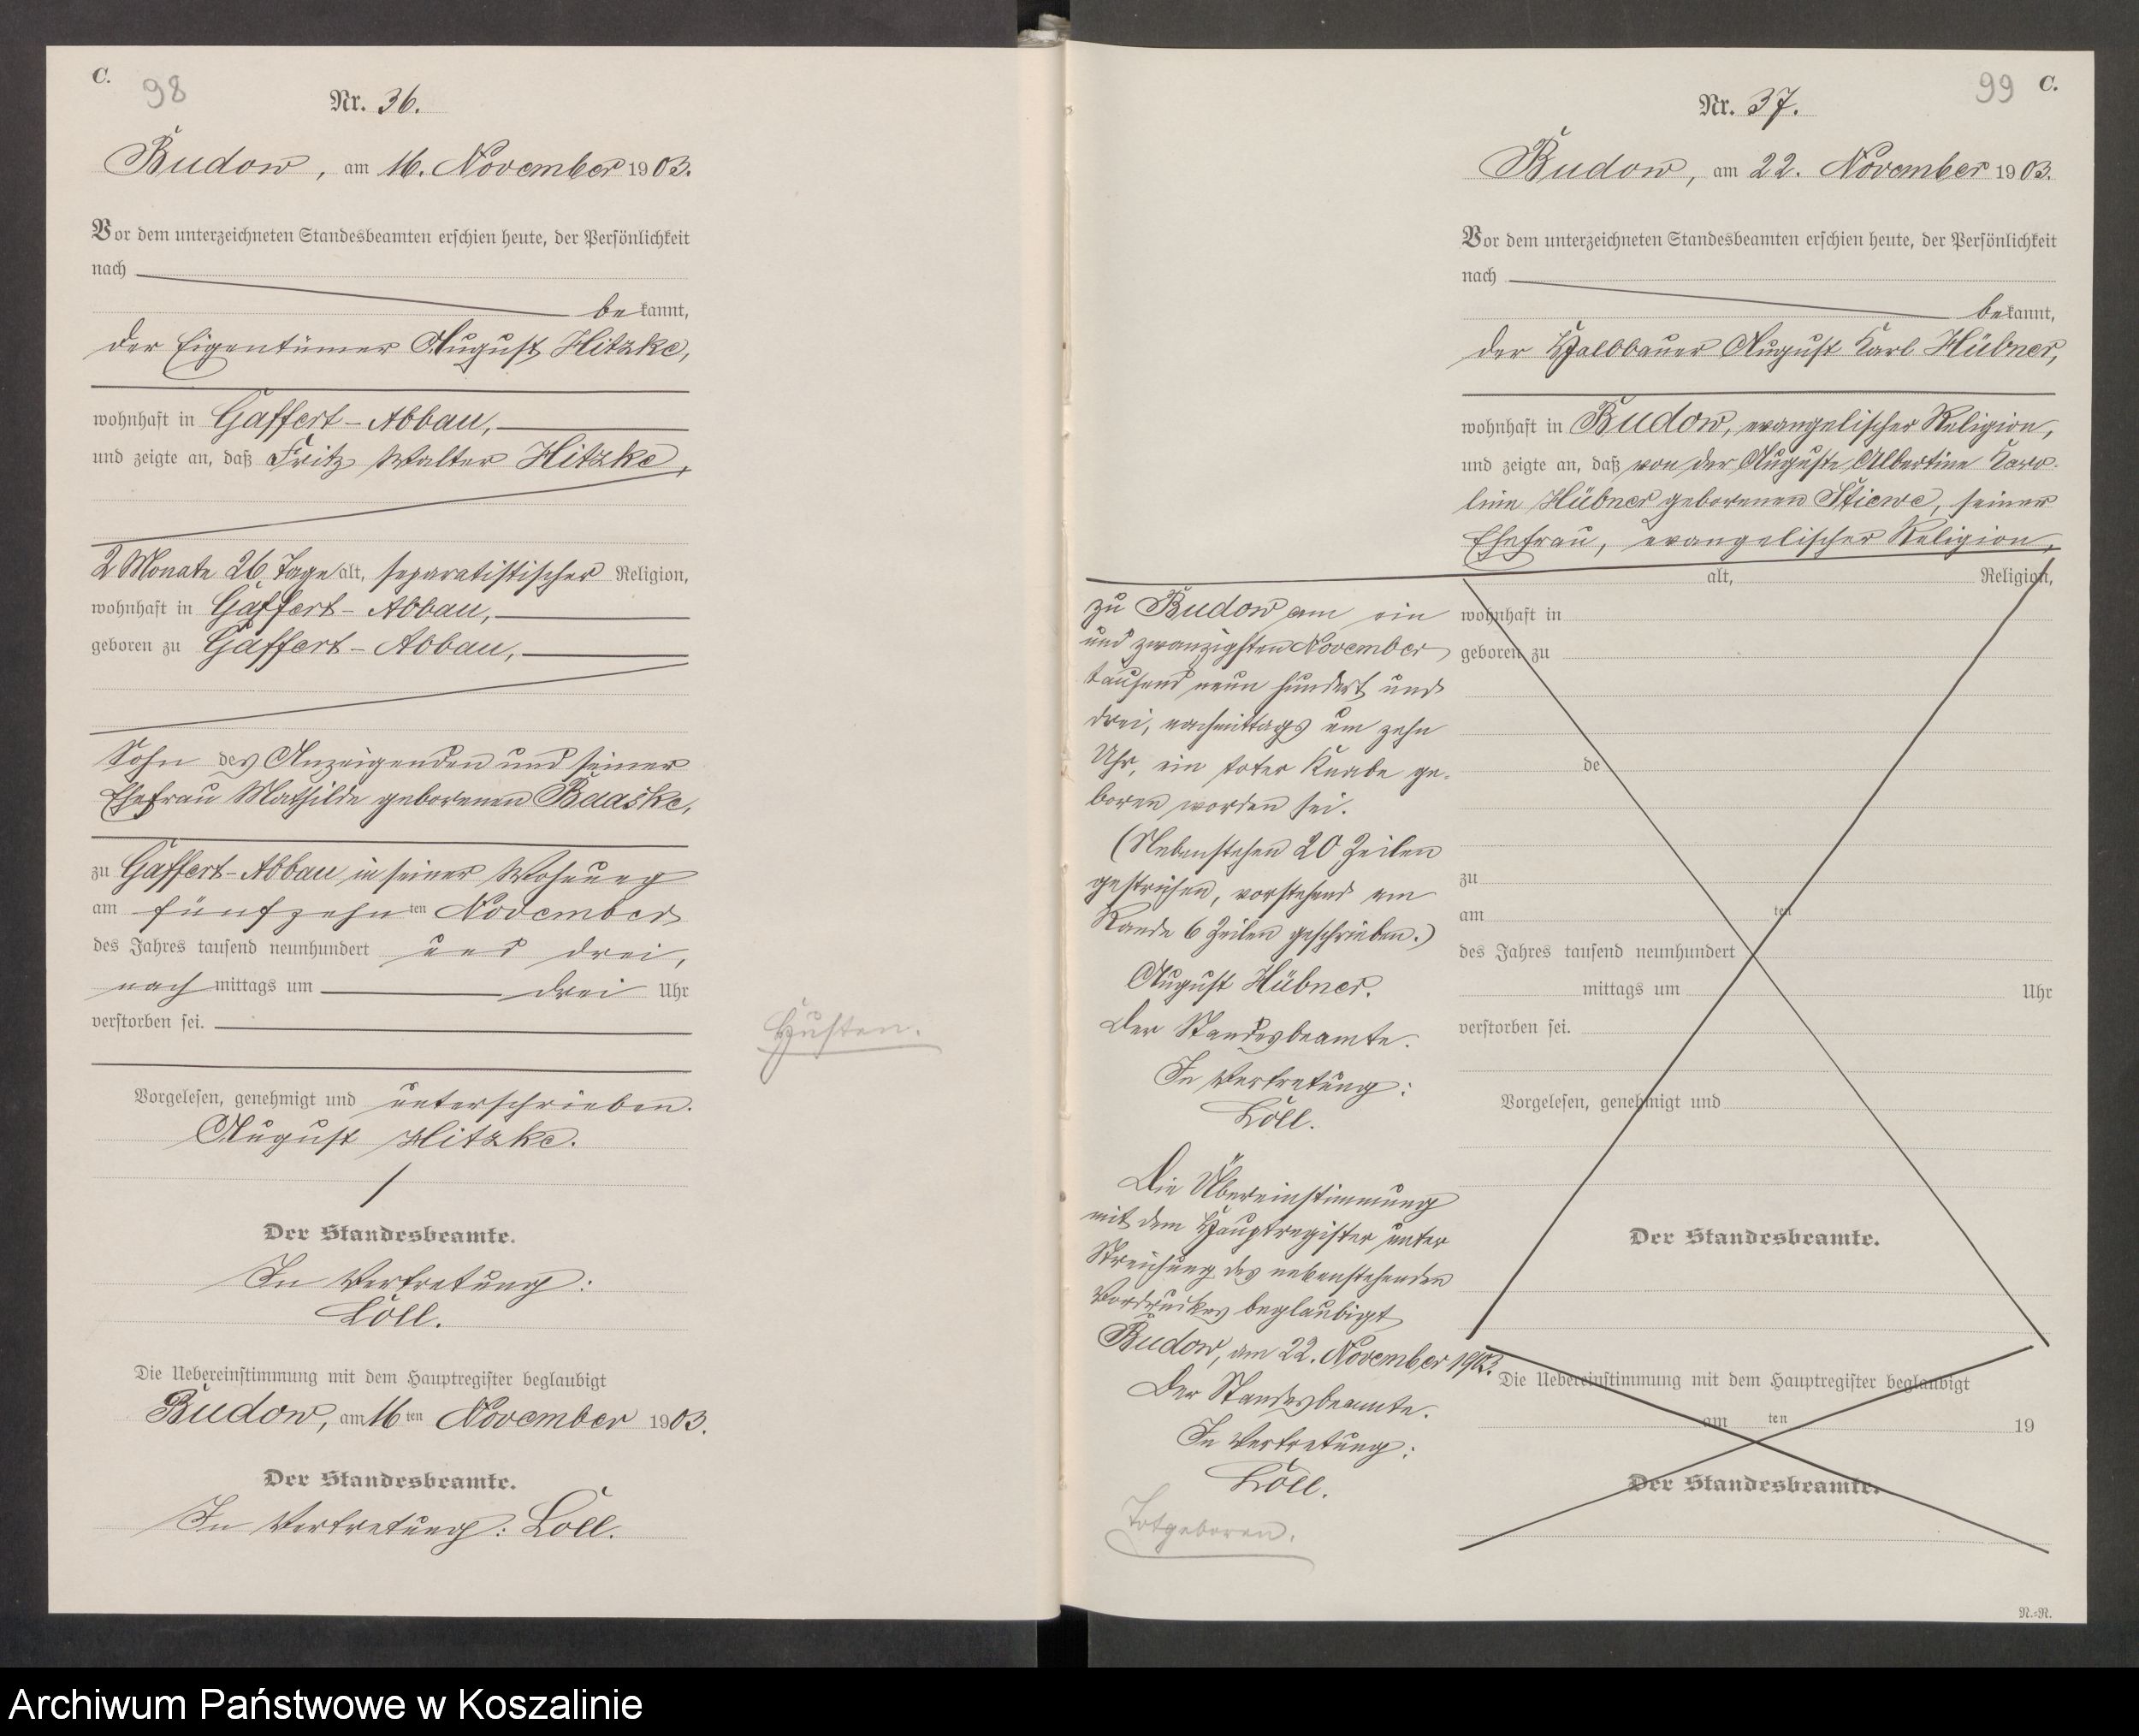 C.
98
Nr. 36.
Budow, am 16. November 1903.
Vor dem unterzeichneten Standesbeamten erschien heute, der Persönlichkeit
nach
bekannt,
der Eigentümer August Hitzke,
wohnhaft in Gaffert-Abbau,
und zeigte an, daß Fritz Walter Hitzke,
2 Monate 26 Tage alt, separatistischer Religion,
wohnhaft in Gaffert-Abbau,
geboren zu Gaffert-Abbau,
Sohn des Anzeigenden und seiner
Ehefrau Mathilde geborenen Baaske,
zu Gaffert-Abbau in seiner Wohnung
am fünfzehnten November
des Jahres tausend neunhundert und drei,
nachmittags um drei Uhr
verstorben sei.
Husten.
Vorgelesen, genehmigt und unterschrieben.
August Hitzke.
Der Standesbeamte.
In Vertretung:
Löll.
Die Uebereinstimmung mit dem Hauptregister beglaubigt
Budow, am 16ten November 1903.
Der Standesbeamte.
In Vertretung: Löll.
99
C.
Nr. 37.
Budow, am 22. November 1903.
Vor dem unterzeichneten Standesbeamten erschien heute, der Persönlichkeit
nach
bekannt,
der Halbbauer August Karl Hübner,
wohnhaft in Budow, evangelischer Religion,
und zeigte an, daß von der Auguste Albertine Karo-
line Hübner geborenen Stiewe, seiner
Ehefrau, evangelischer Religion,
zu Budow am ein
und zwanzigsten November
tausend neun hundert und
drei, nachmittags um zehn
Uhr, ein toter Knabe ge-
boren worden sei.
(Nebenstehend 20 Zeilen
gestrichen, vorstehend am
Rande 6 Zeilen geschrieben.)
August Hübner.
Der Standesbeamte.
In Vertretung:
Löll.
Die Übereinstimmung
mit dem Hauptregister unter
Streichung des nebenstehenden
Vordruckes beglaubigt
Budow, am 22. November 1903.
Der Standesbeamte.
In Vertretung:
Löll.
Totgeboren.
alt, Religion,
wohnhaft in
geboren zu
de
zu
am ten
des Jahres tausend neunhundert
mittags um Uhr
verstorben sei.
Vorgelesen, genehmigt und
Der Standesbeamte.
Die Uebereinstimmung mit dem Hauptregister beglaubigt
am ten 19
Der Standesbeamte.
N.=N.
Archiwum Państwowe w Koszalinie